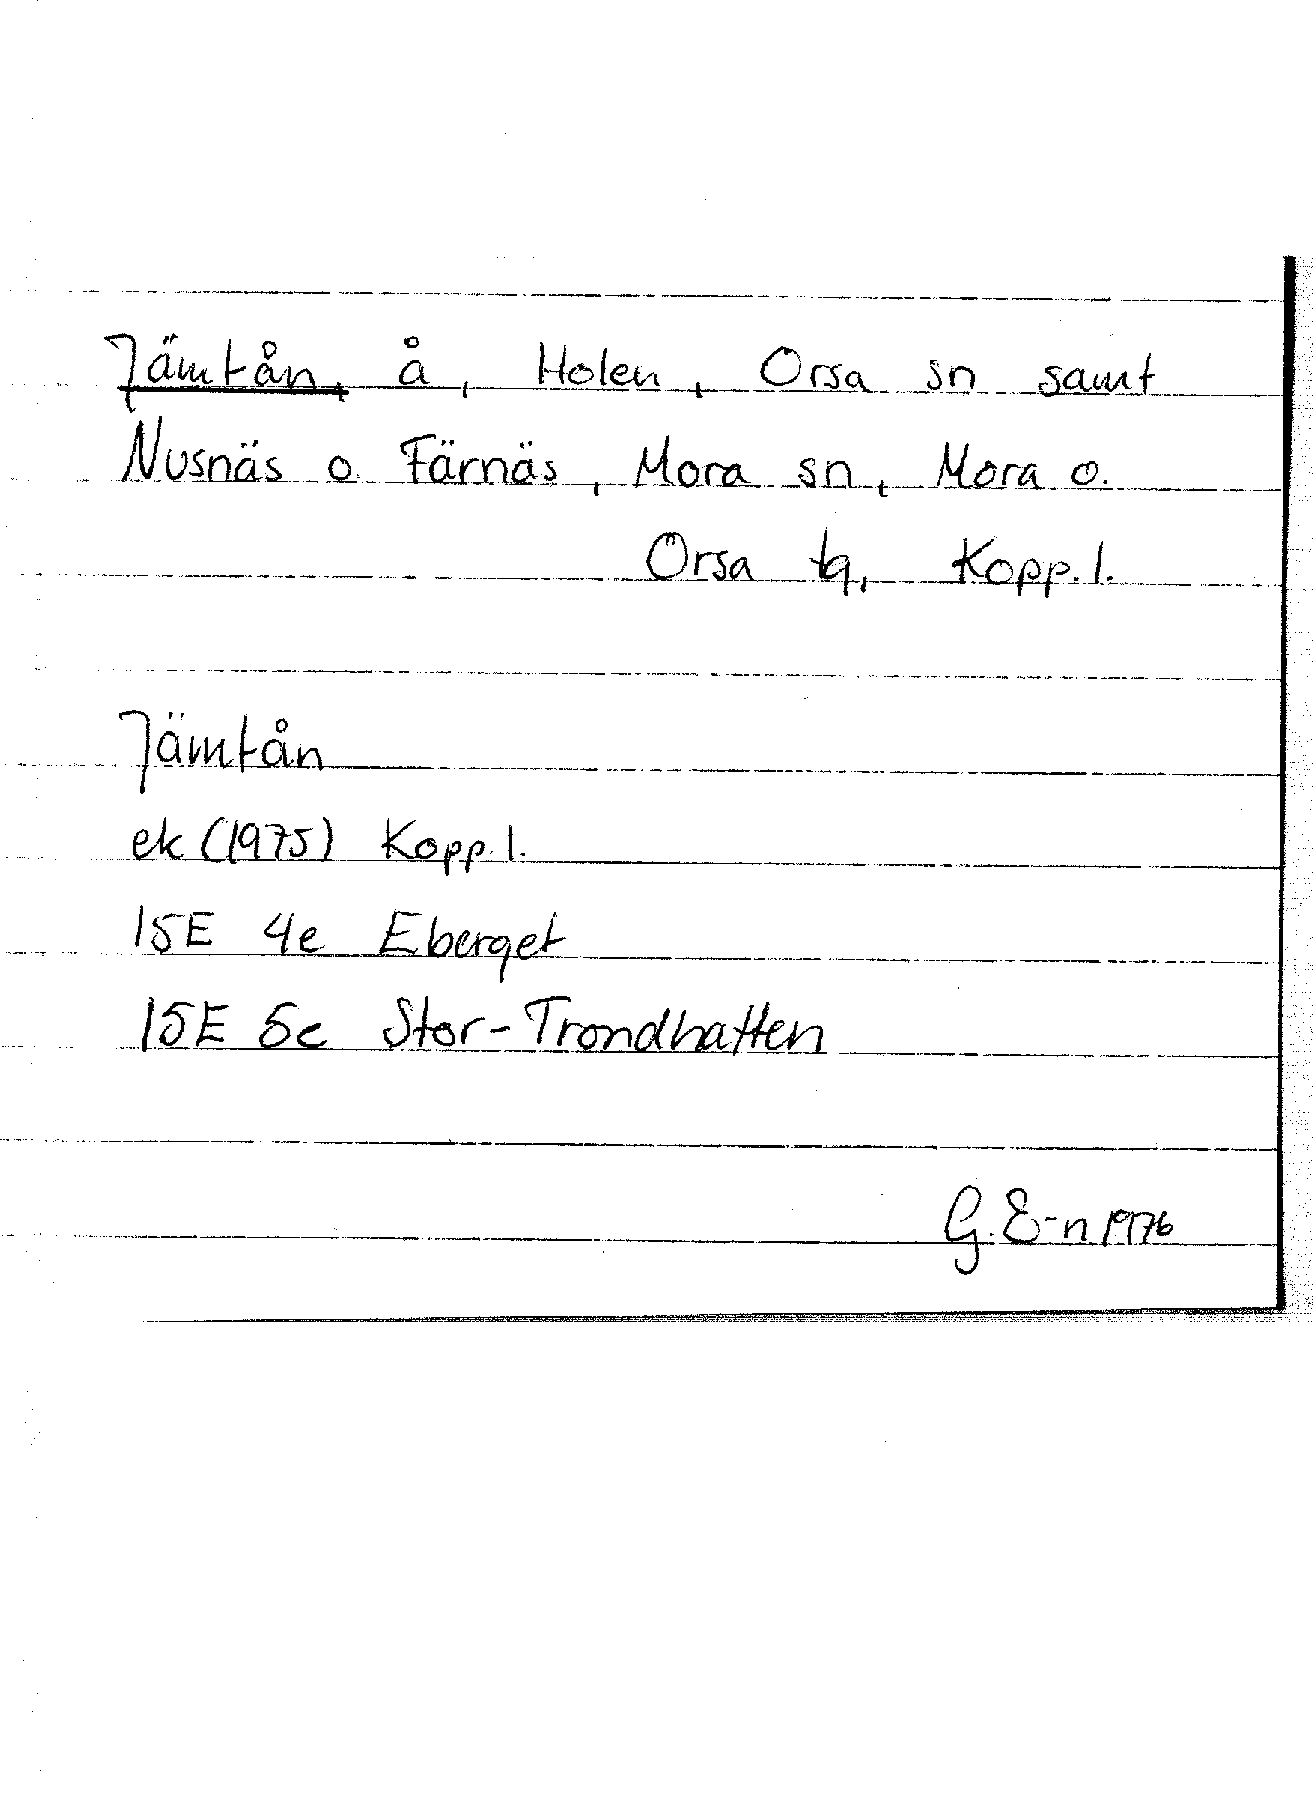 Jämtån, å, Holen, Orsa sn samt
Nusnäs o. Färnäs, Mora sn, Mora o.
Orsa tg, Kopp. l.
Jämtån
ek (1975) Kopp. l.
15E 4e Eberget
15E 5e Stor-Trondhatten
G. E-n 1976